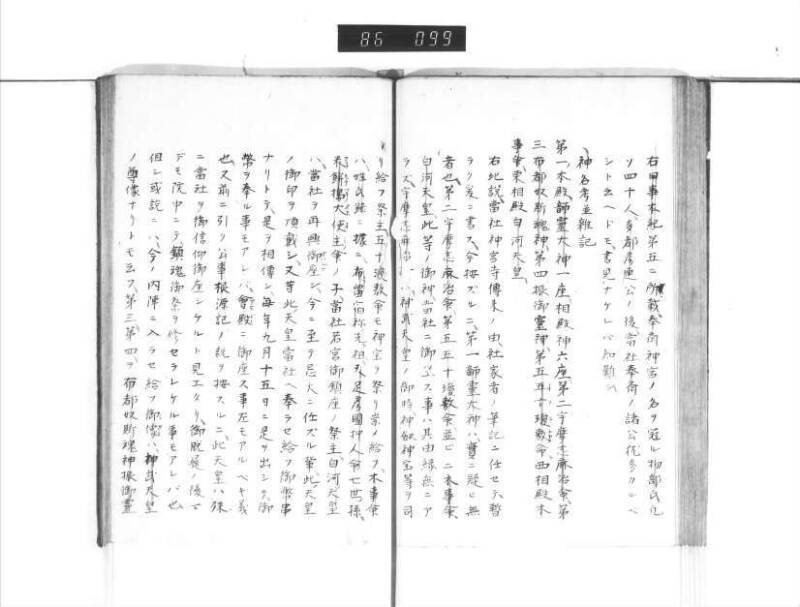 86 099
右旧事本紀第五ニ所載奉斎神宮ノ名ヲ冠ル物部氏凡
ソ四十人首都房連公ノ後當社奉斎ノ諸公
ント云ヘドモ書見ナケレハ知難シ
神名考並雜記
第一本殿師靈大神一座相殿神六座第二宇摩志麻治命第
三布都奴斯魂神第四振御靈神第五年瓊敷命西相殿木
事命東相殿白河天皇
右此説當社神宮寺傳来ノ由社家者ノ筆記ニ任セテ暫
ラク爰ニ書ス今按ズルニ第一師靈大神ハ實ニ疑ヒ無
者也第二宇摩志麻治命第五五十瓊敷命並ビニ木事命
白河天皇此等ノ御神當社ニ御坐ス事ハ其由縁無ニア
ラズ宇摩志麻治ハ神武天皇ノ御時神韴神宝等ヲ司
リ給フ祭主五十瓊敷命モ神宝ヲ祭リ崇メ給フ木事命
ハ姓氏録ニ據ニ布留宿祢先祖天足彦國押人命七世孫
米餅搗大使主命ノ子當社若宮御鎮座ノ祭主白河天皇
ハ當社ヲ再興御座シ今ニ至ヲ忌火ニ仕ズル輩此天皇
ノ御印ヲ頂戴シ又等此天皇當社ヘ奉ラセ給フ御幣串
ナリトテ是ヲ相傳シ毎年九月十五日ニ是ヲ出シテ御
幣ヲ奉ル事モアレバ會殿ニ御座ス事左モアルヘキ義
也又前ニ引ク公事根源記ノ説ヲ按スルニ此天皇ハ殊
ニ當社ヲ御信仰御座シケルト見エタリ御脱屣ノ後マ
デモ院中ニテ鎮魂御祭ヲ修セラレケル事モアレバ也
但シ或説ニハ今ノ内陣ニ入ラセ給フ御像ハ神武天皇
ノ尊像ナリトモ云フ第三第四ヲ布都奴斯魂神振御靈